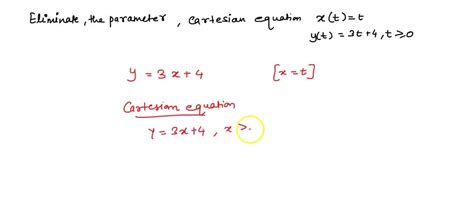 Eliminate, the parameter, Cartesian equation x(t)=t
y(t) = 3t+4, t≥0
y = 3x+4 [x=t]
Cartesian equation
y=3x+4, x >.